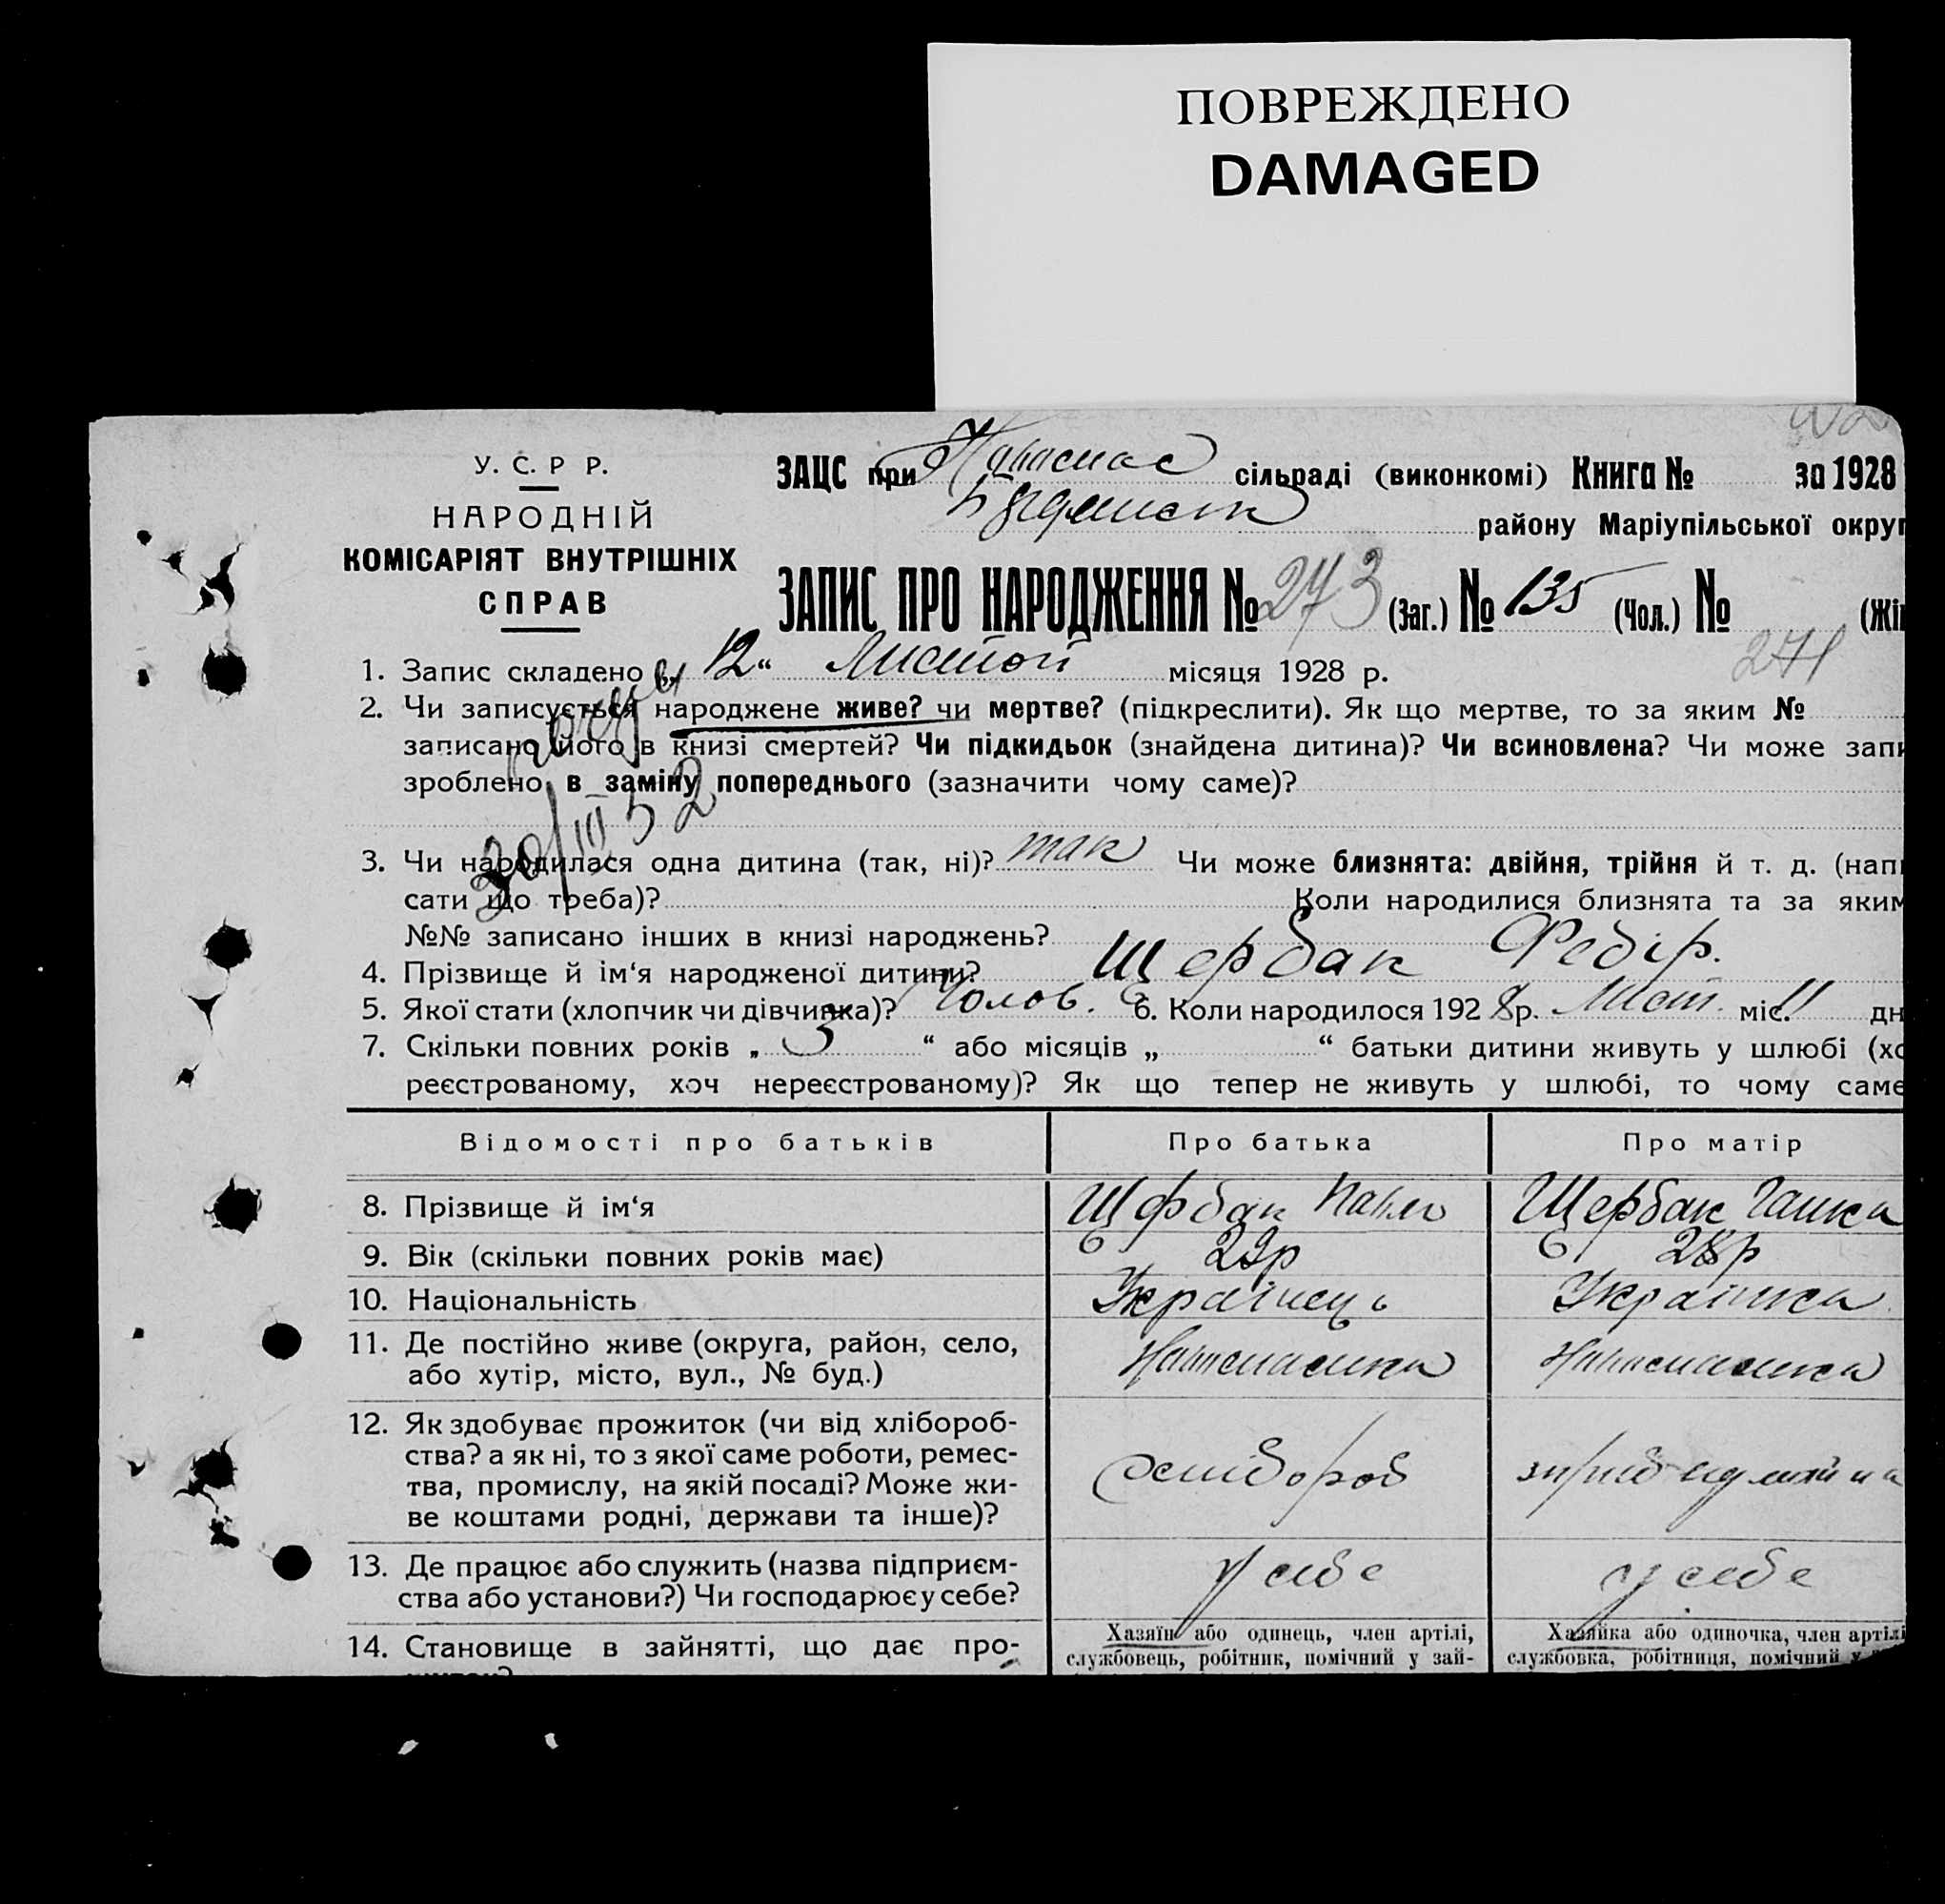 ПОВРЕЖДЕНО
DAMAGED
У. С. Р Р.
НАРОДНІЙ
КОМІСАРІЯТ ВНУТРІШНІХ
СПРАВ
ЗАЦС при сільраді (виконкомі) Книга № за 1928
району Маріупільської округ
ЗАПИС ПРО НАРОДЖЕННЯ № 273 (Заг.) № 135 (Чол.) № (Жі
271
1. Запис складено „ 12 “ Листоп місяця 1928 р.
2. Чи записується народжене живе? чи мертве? (підкреслити). Як що мертве, то за яким №
записано його в книзі смертей? Чи підкидьок (знайдена дитина)? Чи всиновлена? Чи може запи
зроблено в заміну попереднього (зазначити чому саме)?
30/III 52
3. Чи народилася одна дитина (так, ні)? так Чи може близнята: двійня, трійня й т. д. (напи
сати що треба)? Коли народилися близнята та за яким
№№ записано інших в книзі народжень?
4. Прізвище й ім‘я народженої дитини? Щербак Федір.
5. Якої стати (хлопчик чи дівчинка)? Чолов. 6. Коли народилося 1928 р. Лист. міс. 11 дн
7. Скільки повних років „ 3 “ або місяців „ “ батьки дитини живуть у шлюбі (хо
реєстрованому, хоч нереєстрованому)? Як що тепер не живуть у шлюбі, то чому саме
Відомості про батьків Про батька Про матір
8. Прізвище й ім‘я Щербак Павло Щербак Ганка
9. Вік (скільки повних років має) 29р 28р
10. Національність Українець Українка
11. Де постійно живе (округа, район, село,
або хутір, місто, вул., № буд.)
12. Як здобуває прожиток (чи від хлібороб-
ства? а як ні, то з якої саме роботи, ремес-
тва, промислу, на якій посаді? Може жи-
ве коштами родні, держави та інше)?
хлібороб
13. Де працює або служить (назва підприєм-
ства або установи?) Чи господарює у себе?
у себе у себе
14. Становище в зайнятті, що дає про-
Хазяїн або одинець, член артілі,
службовець, робітник, помічний у зай-
Хазяйка або одиночка, член артілі
службовка, робітниця, помічний у